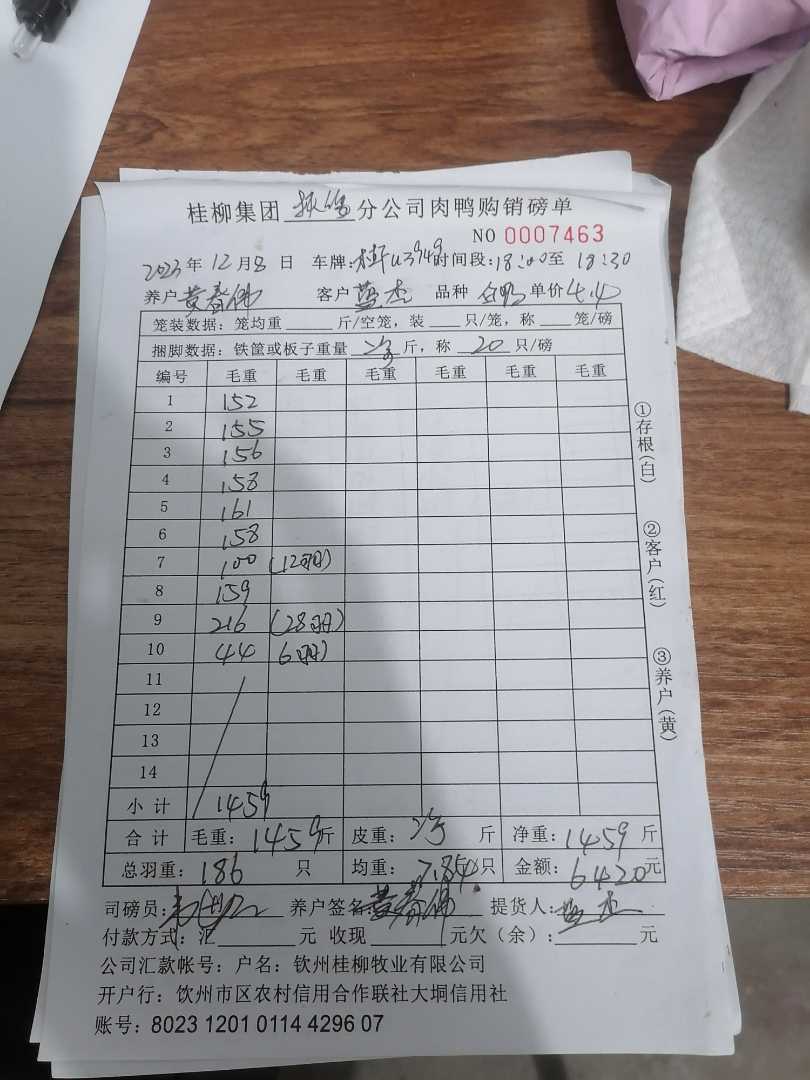 桂柳集团 分公司肉鸭购销磅单
NO 0007463
2023年12月8日 车牌: U3949时间段:18:00至18:30
养户黄春佛 客户蓝杰 品种 白鸭 单价4.40
笼装数据:笼均重 斤/空笼,装 只/笼,称 笼/磅
捆脚数据:铁筐或板子重量 净 斤,称 20 只/磅
编号 毛重 毛重 毛重 毛重 毛重 毛重
1 152
2 155
3 156
4 158
5 161
6 158
7 100 (12羽)
8 159
9 216 (28羽)
10 44 6羽)
11
12
13
14
小计 1459
合计 毛重:1459斤 皮重:净 斤 净重:1459斤
总羽重:186 只 均重:7.854只 金额:6420元
司磅员: 养户签名黄春佛 提货人:蓝杰
付款方式:汇 元 收现 元欠(余): 元
公司汇款帐号:户名:钦州桂柳牧业有限公司
开户行:饮州市区农村信用合作联社大垌信用社
账号:8023 1201 0114 4296 07
①存根(白)
②客户(红)
③养户(黄)